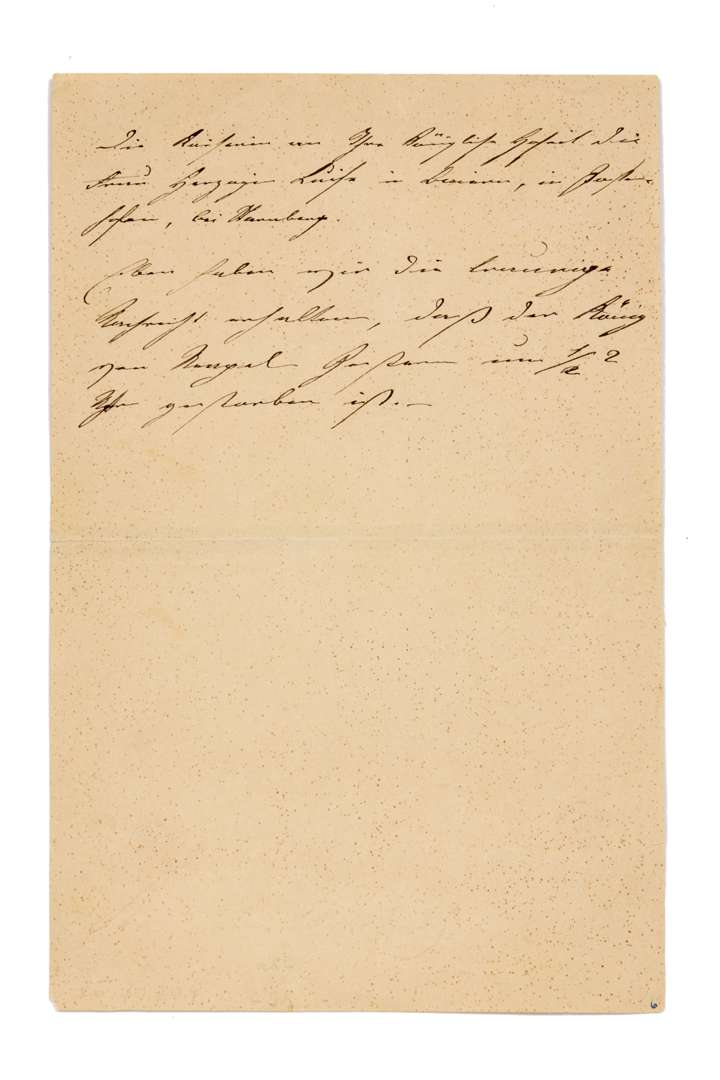 Die Kaiserin an Ihre Königliche Hoheit die
Frau Herzogin Luise in Baiern, in Possen-
hofen, bei Starnberg.
Eben haben wir die traurige
Nachricht erhalten, daß der König
von Neapel Gestern um 1/2 2
Uhr gestorben ist. —
6